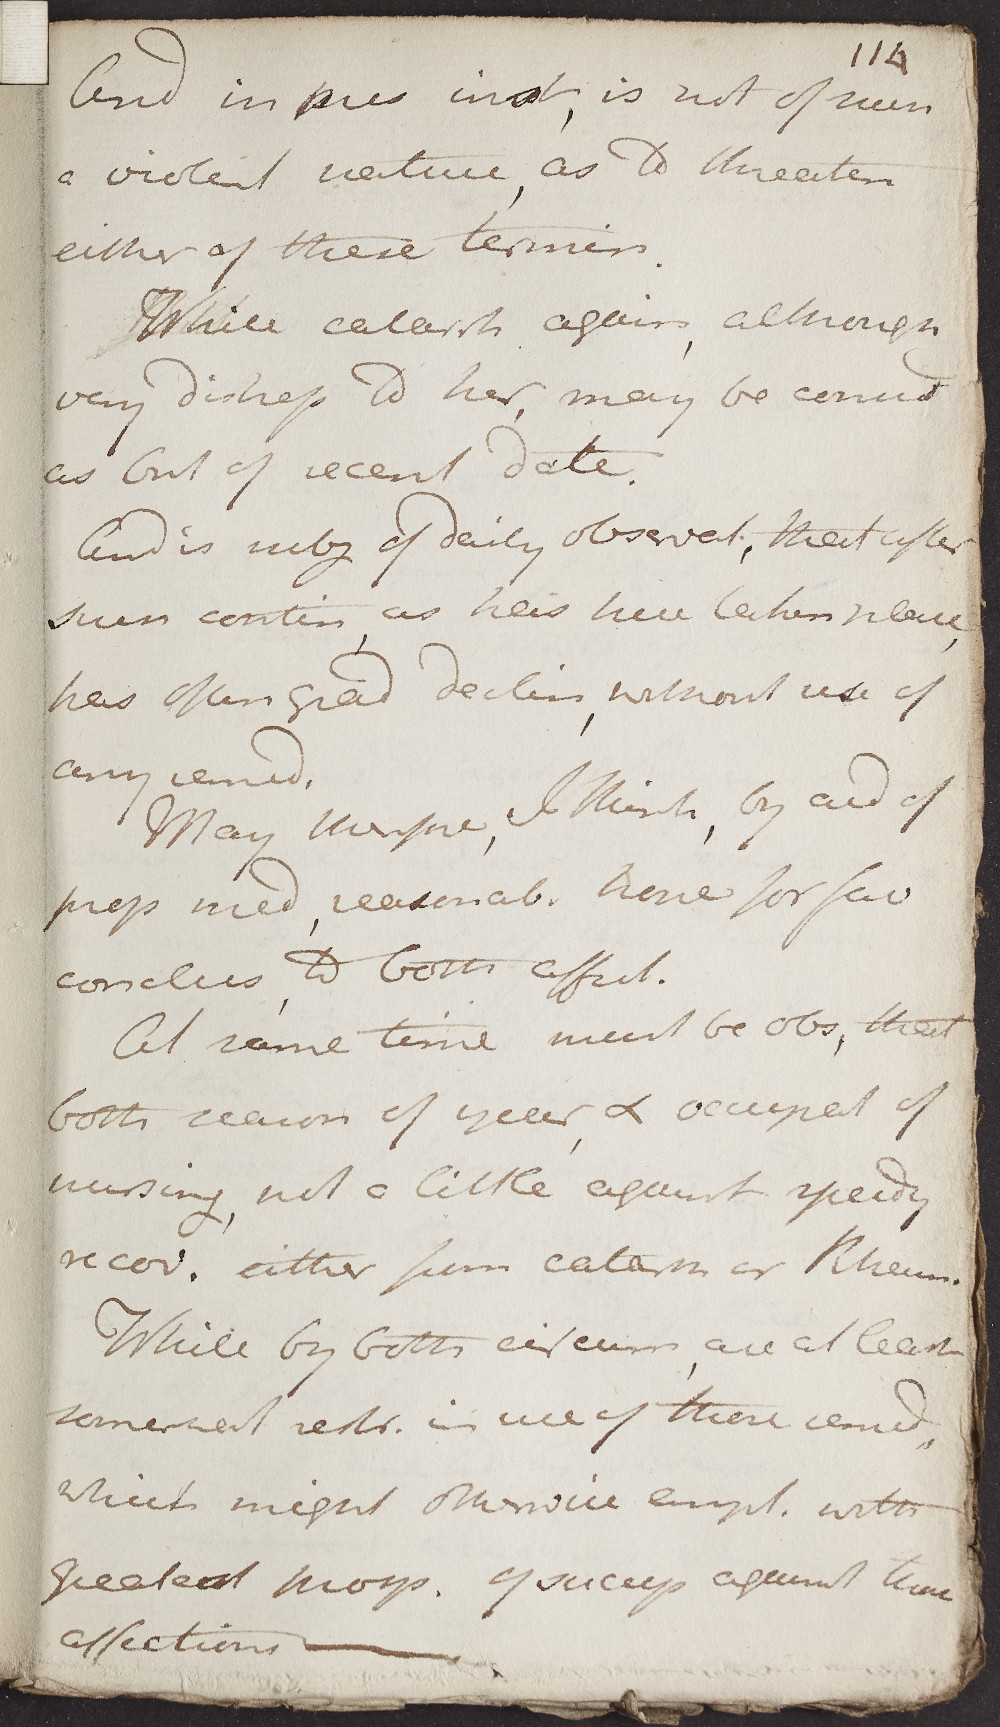 114
And in pres inst, is not of such
a violent nature, as to threaten
either of these termin.
While catarrh again, although
very distress to her, may be consid
as but of recent date.
And is subj of daily observat, that after
such contin, as has here taken place,
has often grad declin, without use of
any remed.
May therefore, I think, by aid of
prop med, reasonab. hope for fav
conclus, to both affect.
At same time must be obs, that
both season of year, & occupat of
nursing, not a little against speedy
recov. either from catarrh or Rheum.
While by both circum, are at least
somewhat restr. in use of those remed,
which might otherwise empl. with
greatest prosp. of success against these
affections